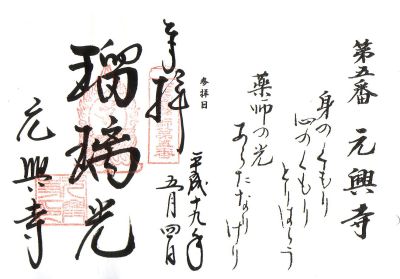 第五番 元興寺
身のくもり
心のくもり
とりはらう
薬師の光
あらたなり
けり
参拝日
平成十九年
五月四日
奉拝
瑠璃光
元興寺